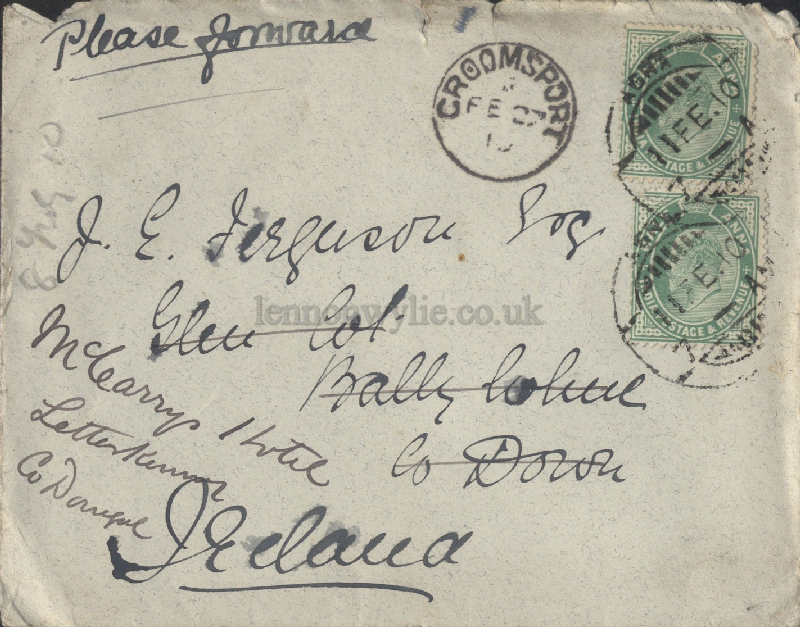 Please forward
GROOMSPORT
FE 27
10
AGRA
1 FE. 10
INDIA POSTAGE & REVENUE
AGRA
1 FE. 10
INDIA POSTAGE & REVENUE
J. E. Ferguson Esq
Glen Cot
Bally Holme
Co Down
Ireland
McCarrys Hotel
Letterkenny
Co Donegal
lennonwylie.co.uk